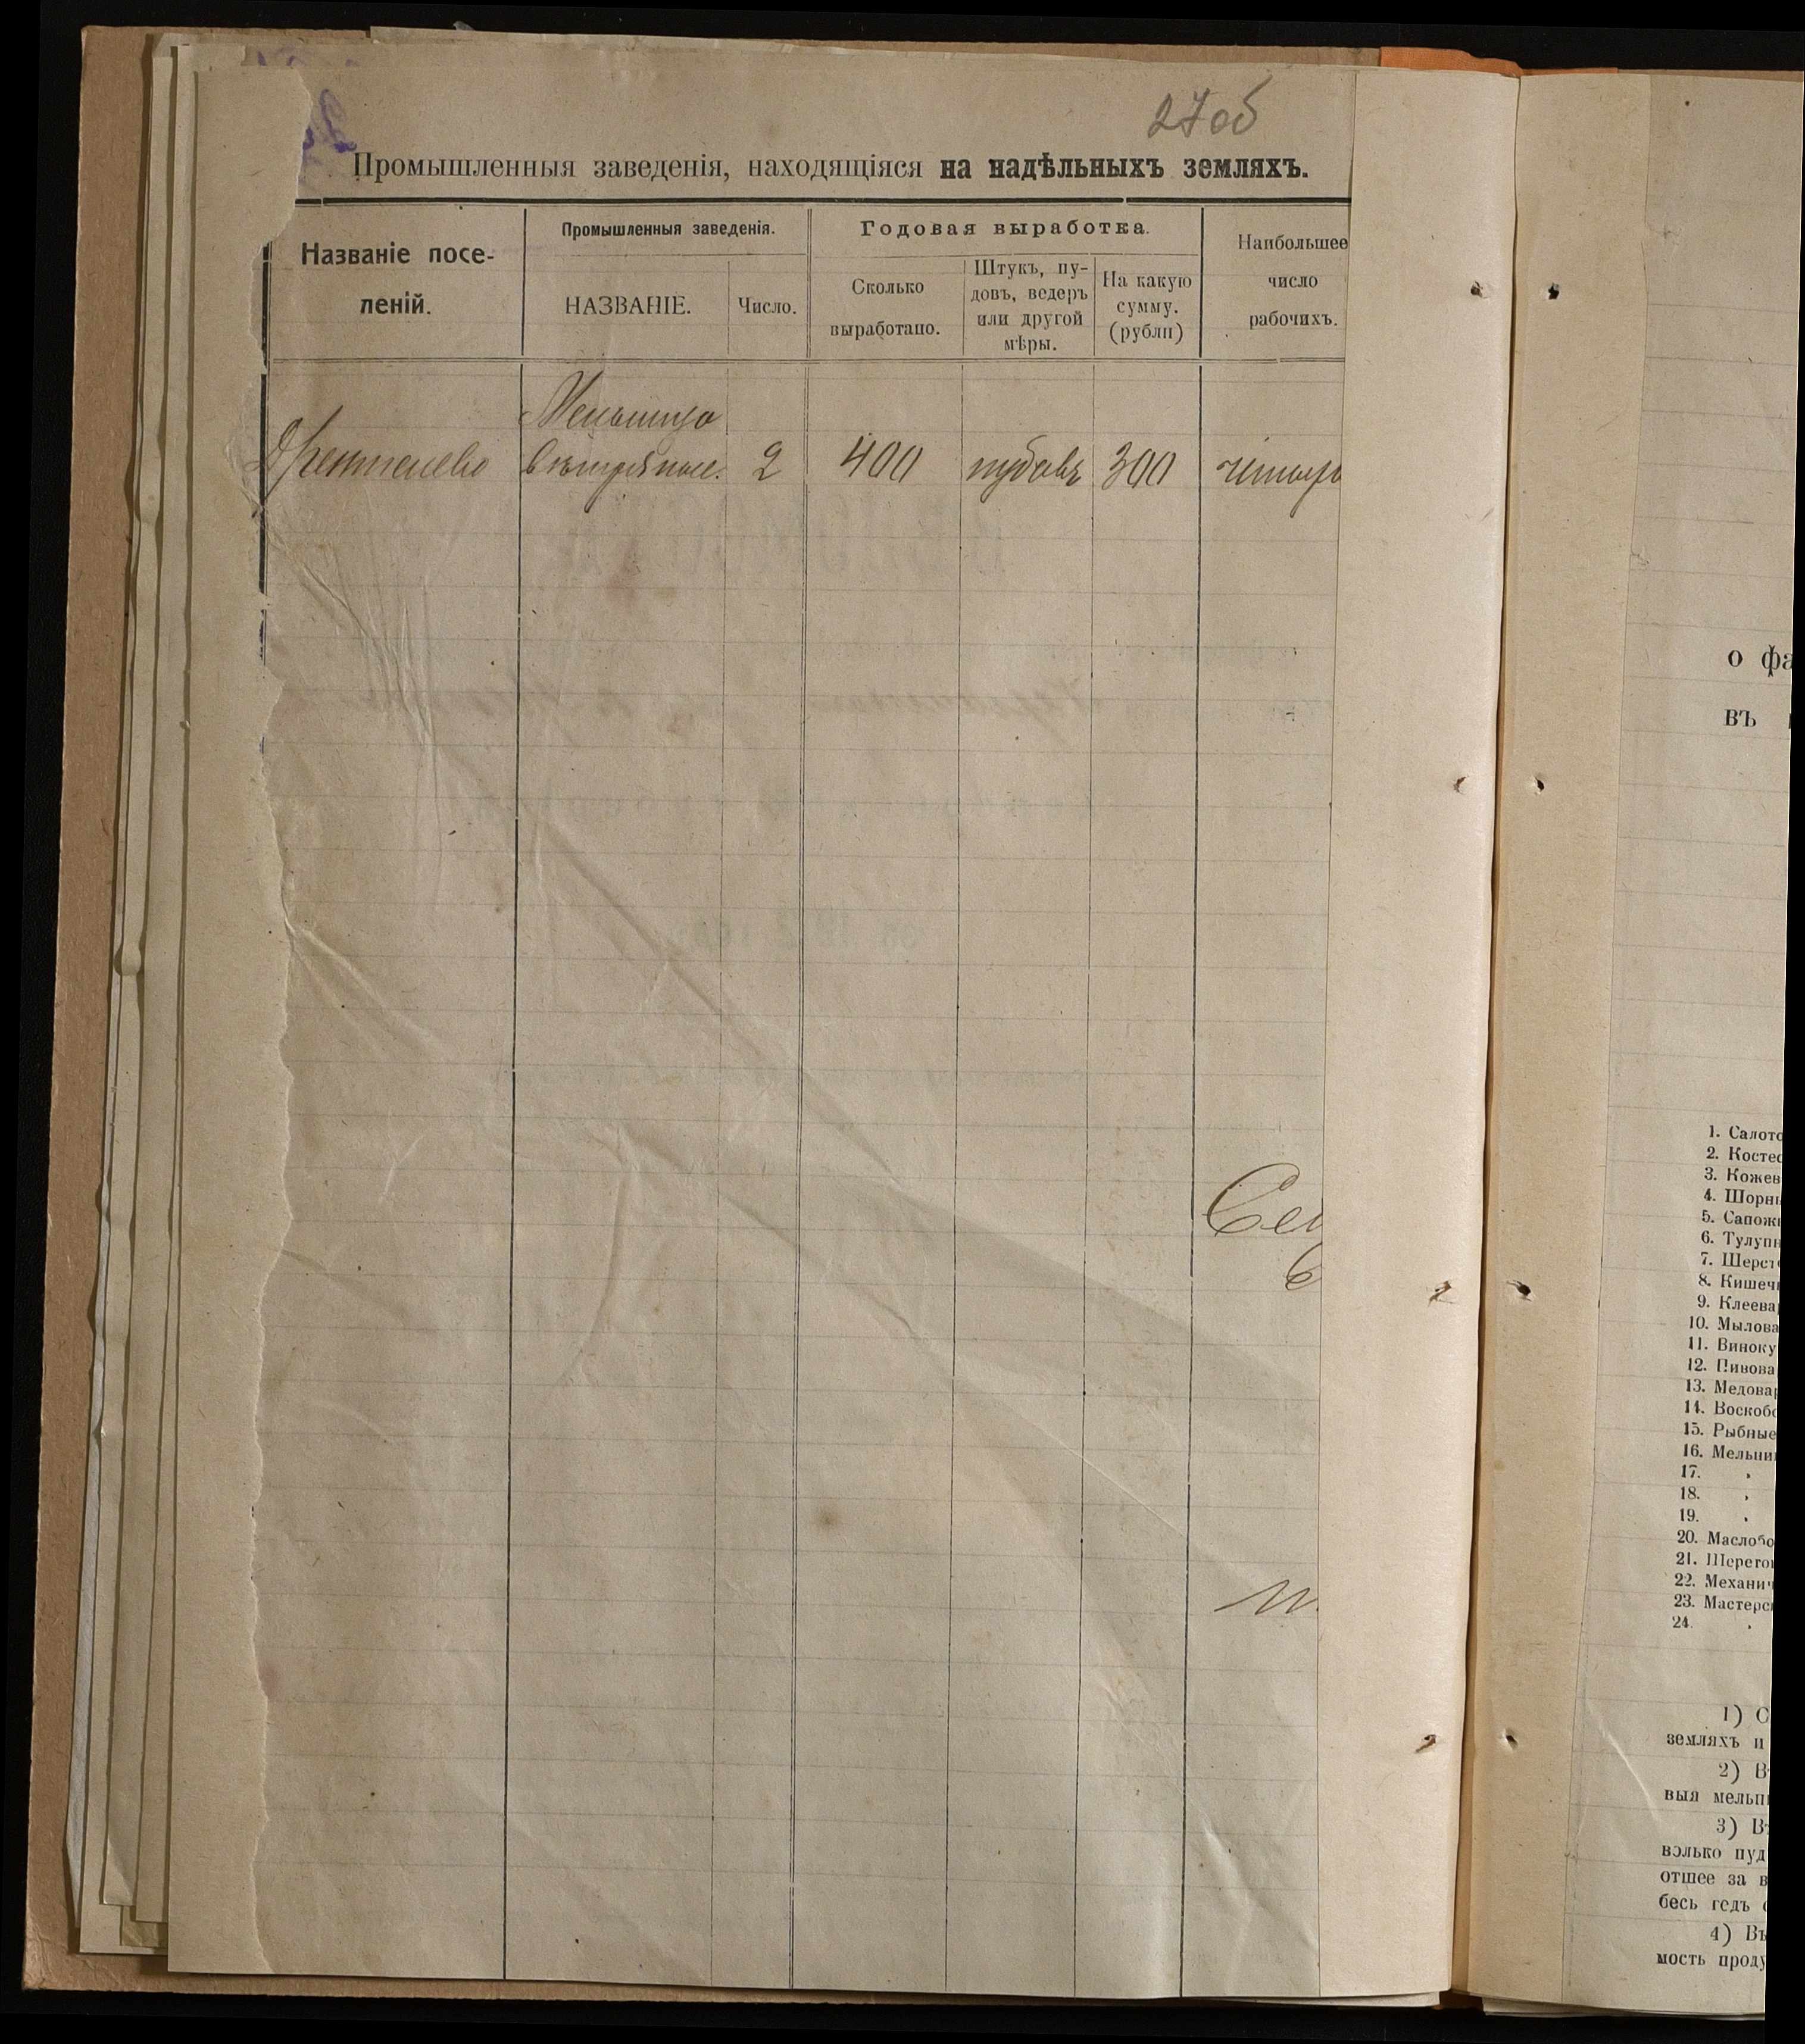 27об
Промышленныя заведенія, находящіяся на надѣльныхъ земляхъ.
Названіе посе-
леній.
Промышленныя заведенія.
НАЗВАНІЕ.
Число.
Годовая выработка.
Сколько
выработано.
Штукъ, пу-
довъ, ведеръ
или другой
мѣры.
На какую
сумму.
(рубли)
Наибольшее
число
рабочихъ.
Мельница
2
400
пудовъ
300
четыр
Сел
о фа
въ
1. Салото
2. Костео
3. Кожев
4. Шорн
5. Сапож
6. Тулупн
7. Шерст
8. Кишеч
9. Клеева
10. Мылова
11. Виноку
12. Пивова
13. Медова
14. Воскоб
15. Рыбные
16. Мельни
17.
18.
19.
20. Маслобо
21. Шерс
22. Механич
23. Мастерс
24.
1) С
земляхъ и
2) В
выя мельн
3) В
волько пуд
отшее за в
бесь годъ
4) Въ
мость проду